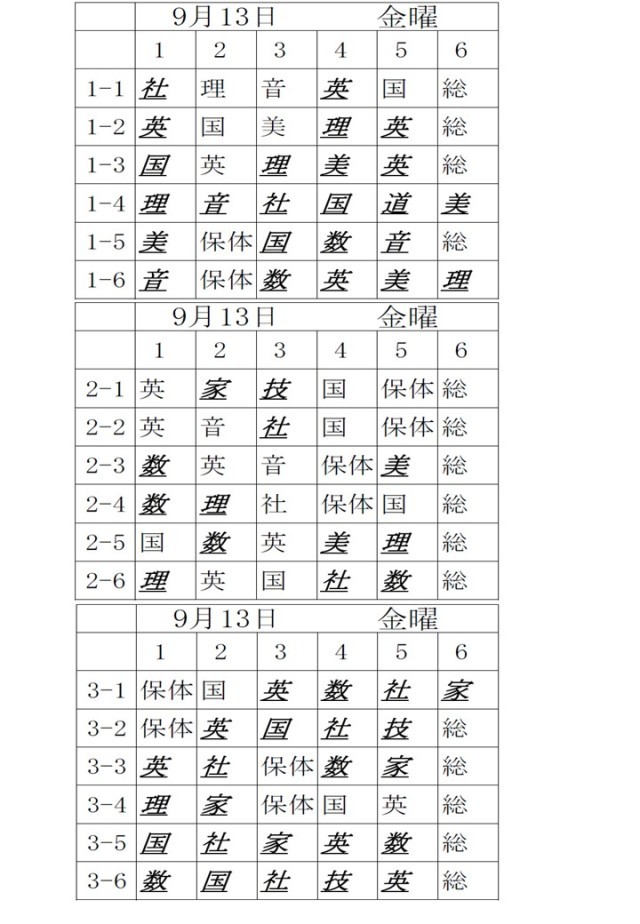 9月13日 金曜
1 2 3 4 5 6
1-1 社 理 音 英 国 総
1-2 英 国 美 理 英 総
1-3 国 英 理 美 英 総
1-4 理 音 社 国 道 美
1-5 美 保体 国 数 音 総
1-6 音 保体 数 英 美 理
9月13日 金曜
1 2 3 4 5 6
2-1 英 家 技 国 保体 総
2-2 英 音 社 国 保体 総
2-3 数 英 音 保体 美 総
2-4 数 理 社 保体 国 総
2-5 国 数 英 美 理 総
2-6 理 英 国 社 数 総
9月13日 金曜
1 2 3 4 5 6
3-1 保体 国 英 数 社 家
3-2 保体 英 国 社 技 総
3-3 英 社 保体 数 家 総
3-4 理 家 保体 国 英 総
3-5 国 社 家 英 数 総
3-6 数 国 社 技 英 総